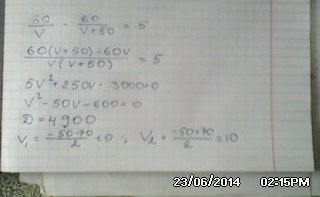 60/V - 60/V+50 = 5
60(V+50)-60V/V(V+50) = 5
5V²+250V-3000=0
V²-50V-600=0
D=4900
V₁=-50-70/2<0; V₂=-50+70/2=10
23/06/2014 02:15PM